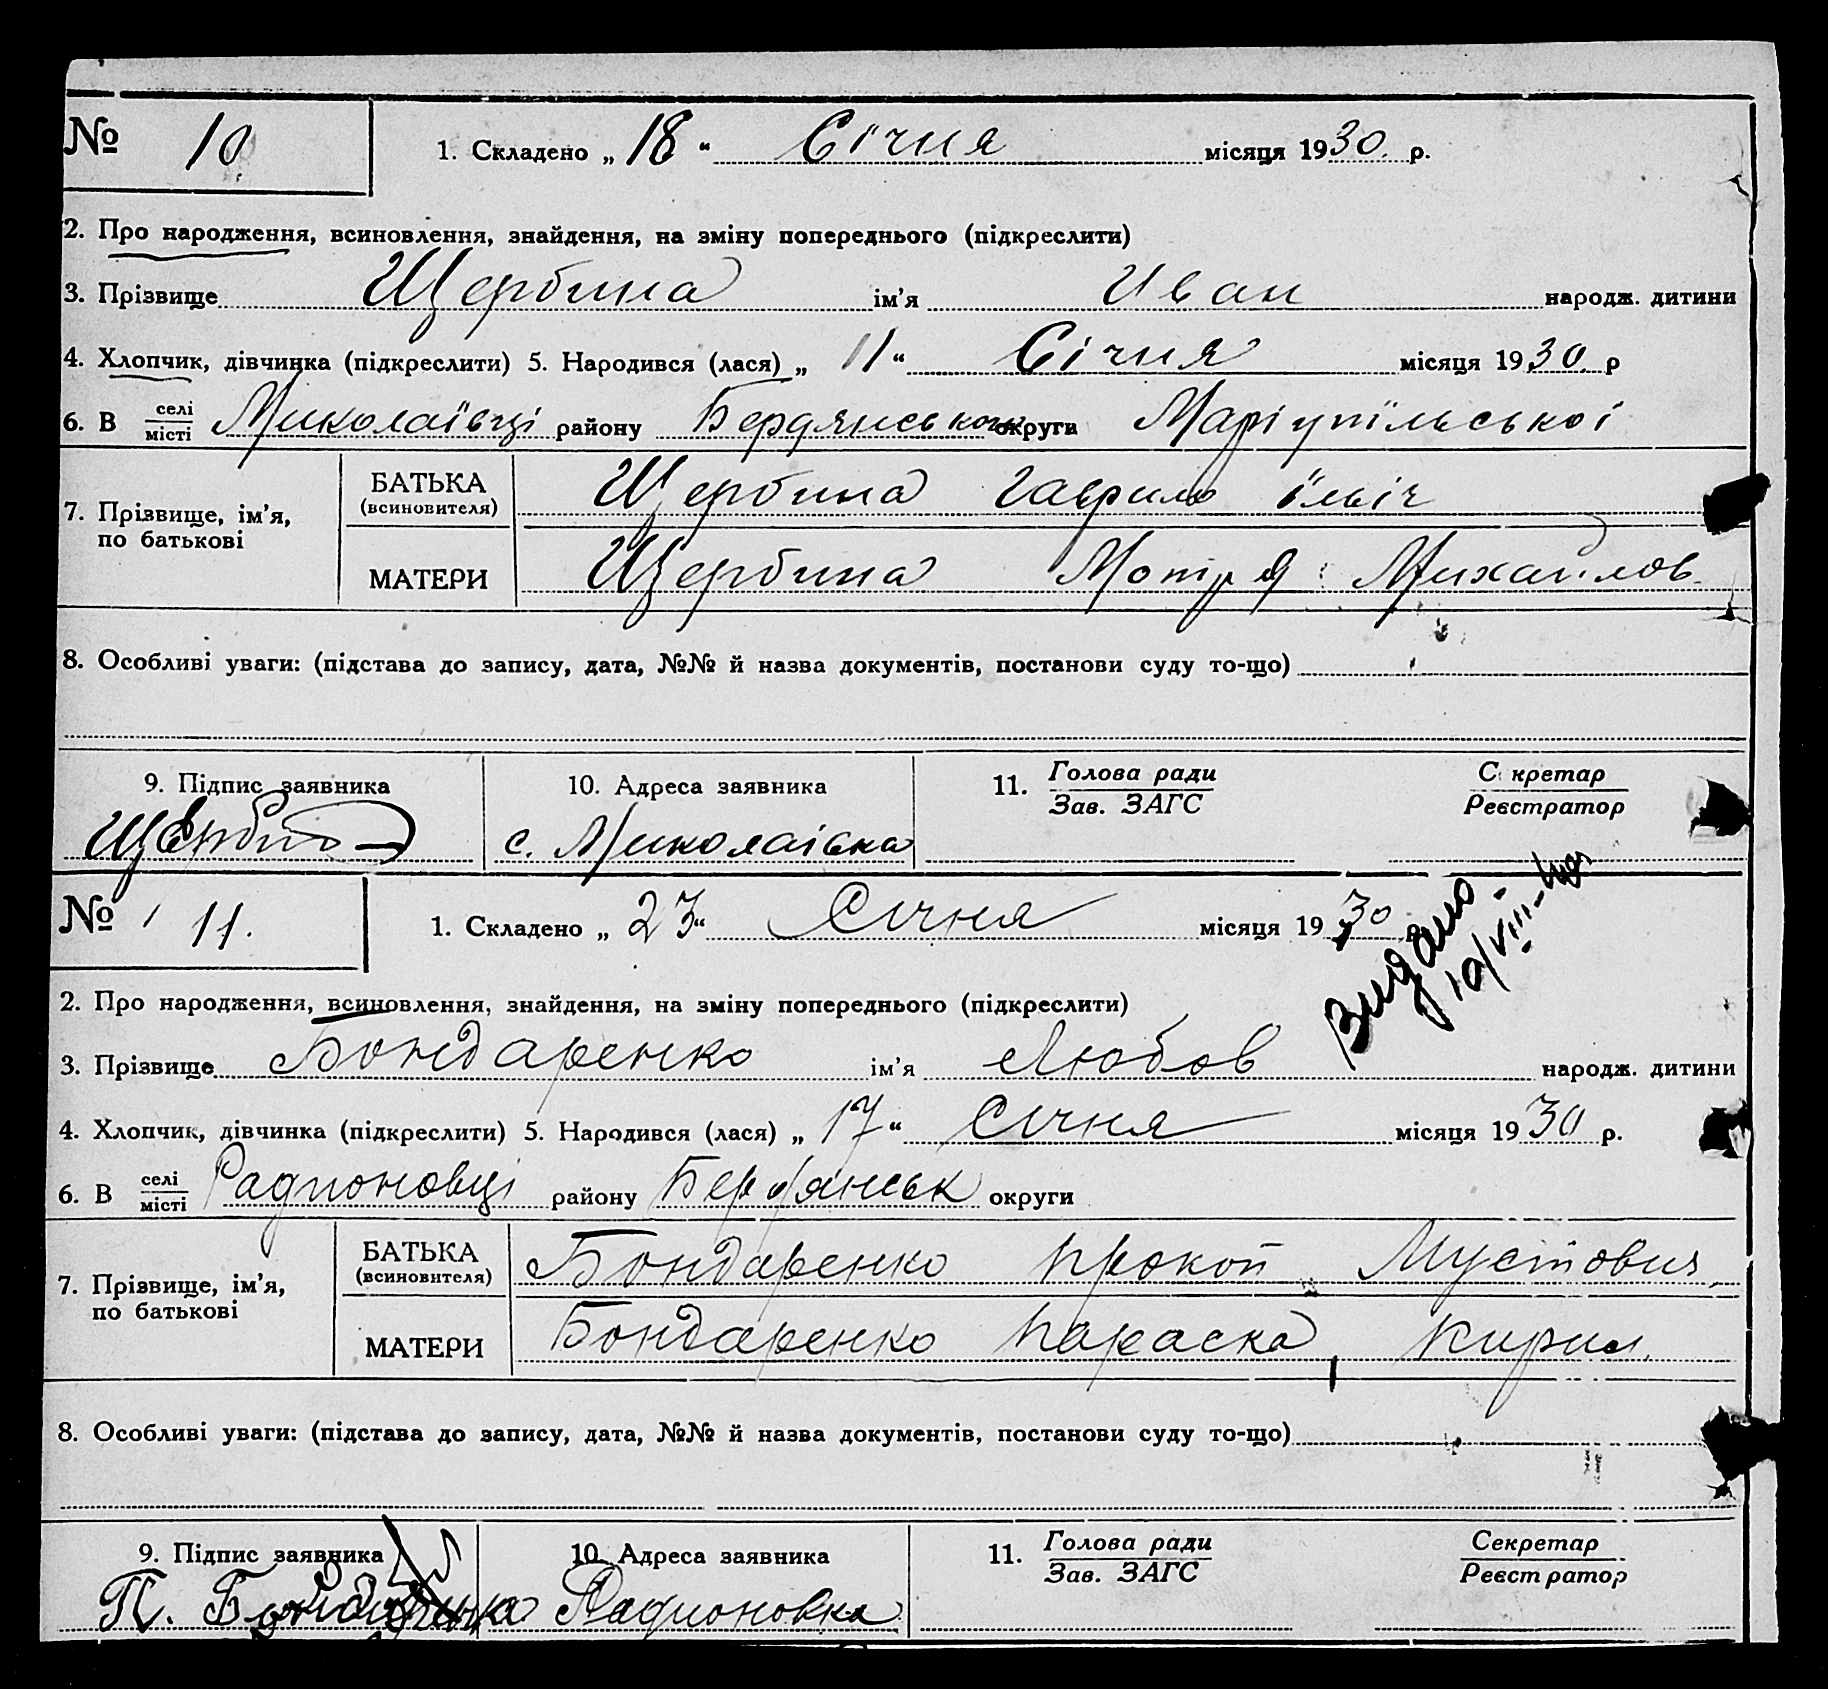 № 10 1. Складено „ 18 “ Січня місяця 1930. р.
2. Про народження, всиновлення, знайдення, на зміну попереднього (підкреслити)
3. Прізвище Щербина ім’я Иван народж. дитини
4. Хлопчик, дівчинка (підкреслити) 5. Народився (лася) „ 11 “ Січня місяця 1930. р
6. В селі/місті Миколаївці району Бердянського округи Маріупільської
7. Прізвище, ім’я, по батькові
БАТЬКА (всиновителя) Щербина Гаврило Їльіч
МАТЕРИ Щербина Мотря Михайлов.
8. Особливі уваги: (підстава до запису, дата, №№ й назва документів, постанови суду то-що)
9. Підпис заявника 10. Адреса заявника 11. Голова ради/Зав. ЗАГС С кретар/Реєстратор
с. Миколаівка
№ 11. 1. Складено „ 23 “ Січня місяця 1930 р.
Видано.
10/VIII-
2. Про народження, всиновлення, знайдення, на зміну попереднього (підкреслити)
3. Прізвище Бондаренко ім’я Любов народж. дитини
4. Хлопчик, дівчинка (підкреслити) 5. Народився (лася) „ 17 “ Січня місяця 1930 р.
6. В селі/місті Радионовці району Бердянськ округи
7. Прізвище, ім’я, по батькові
БАТЬКА (всиновителя) Бондаренко Прокоп
МАТЕРИ Бондаренко Параска Кирил.
8. Особливі уваги: (підстава до запису, дата, №№ й назва документів, постанови суду то-що)
9. Підпис заявника 10. Адреса заявника 11. Голова ради/Зав. ЗАГС Секретар/Реєстратор
П. Бондаренко Радионовка